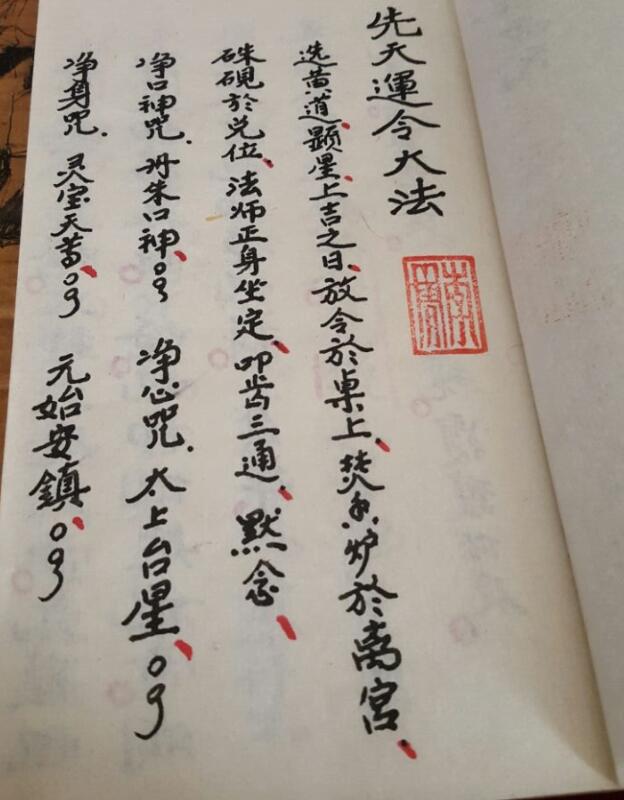 先天運令大法
选黄道、顯星、上吉之日、放令於桌上、焚香炉於离宫、
硃硯於兑位、法师正身坐定、叩齿三通、默念、
净口神咒、丹朱口神、 净心咒、太上台星、
净身咒、灵宝天尊、 元始安鎮、